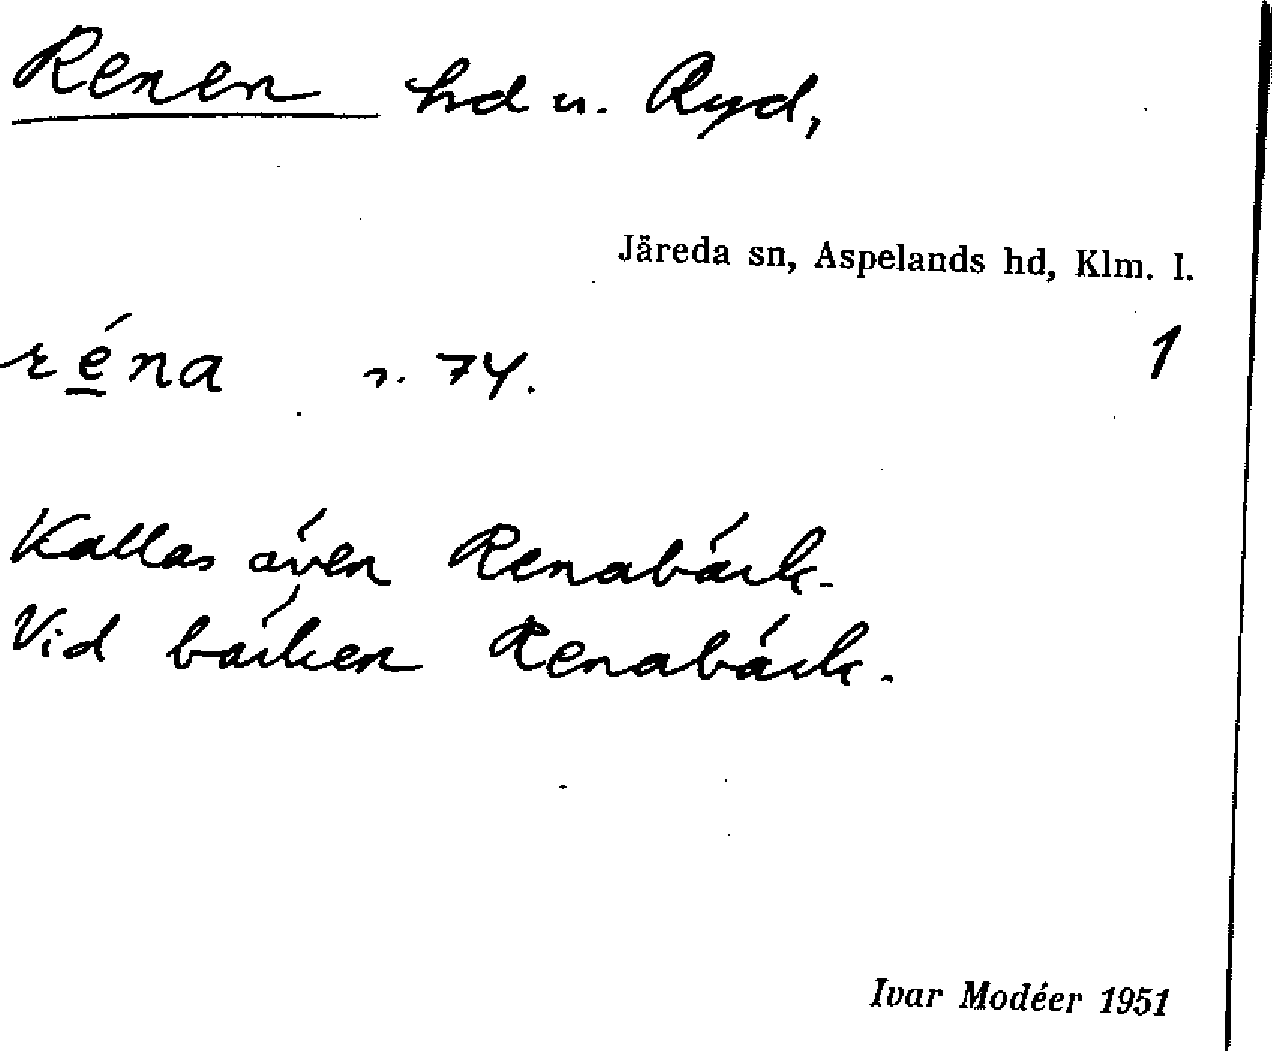 Renen hd u. Ryd,
Järeda sn, Aspelands hd, Klm. l.
réna s. 74. 1
Kallas även Renabäck.
Vid bäcken Renabäck.
Ivar Modéer 1951